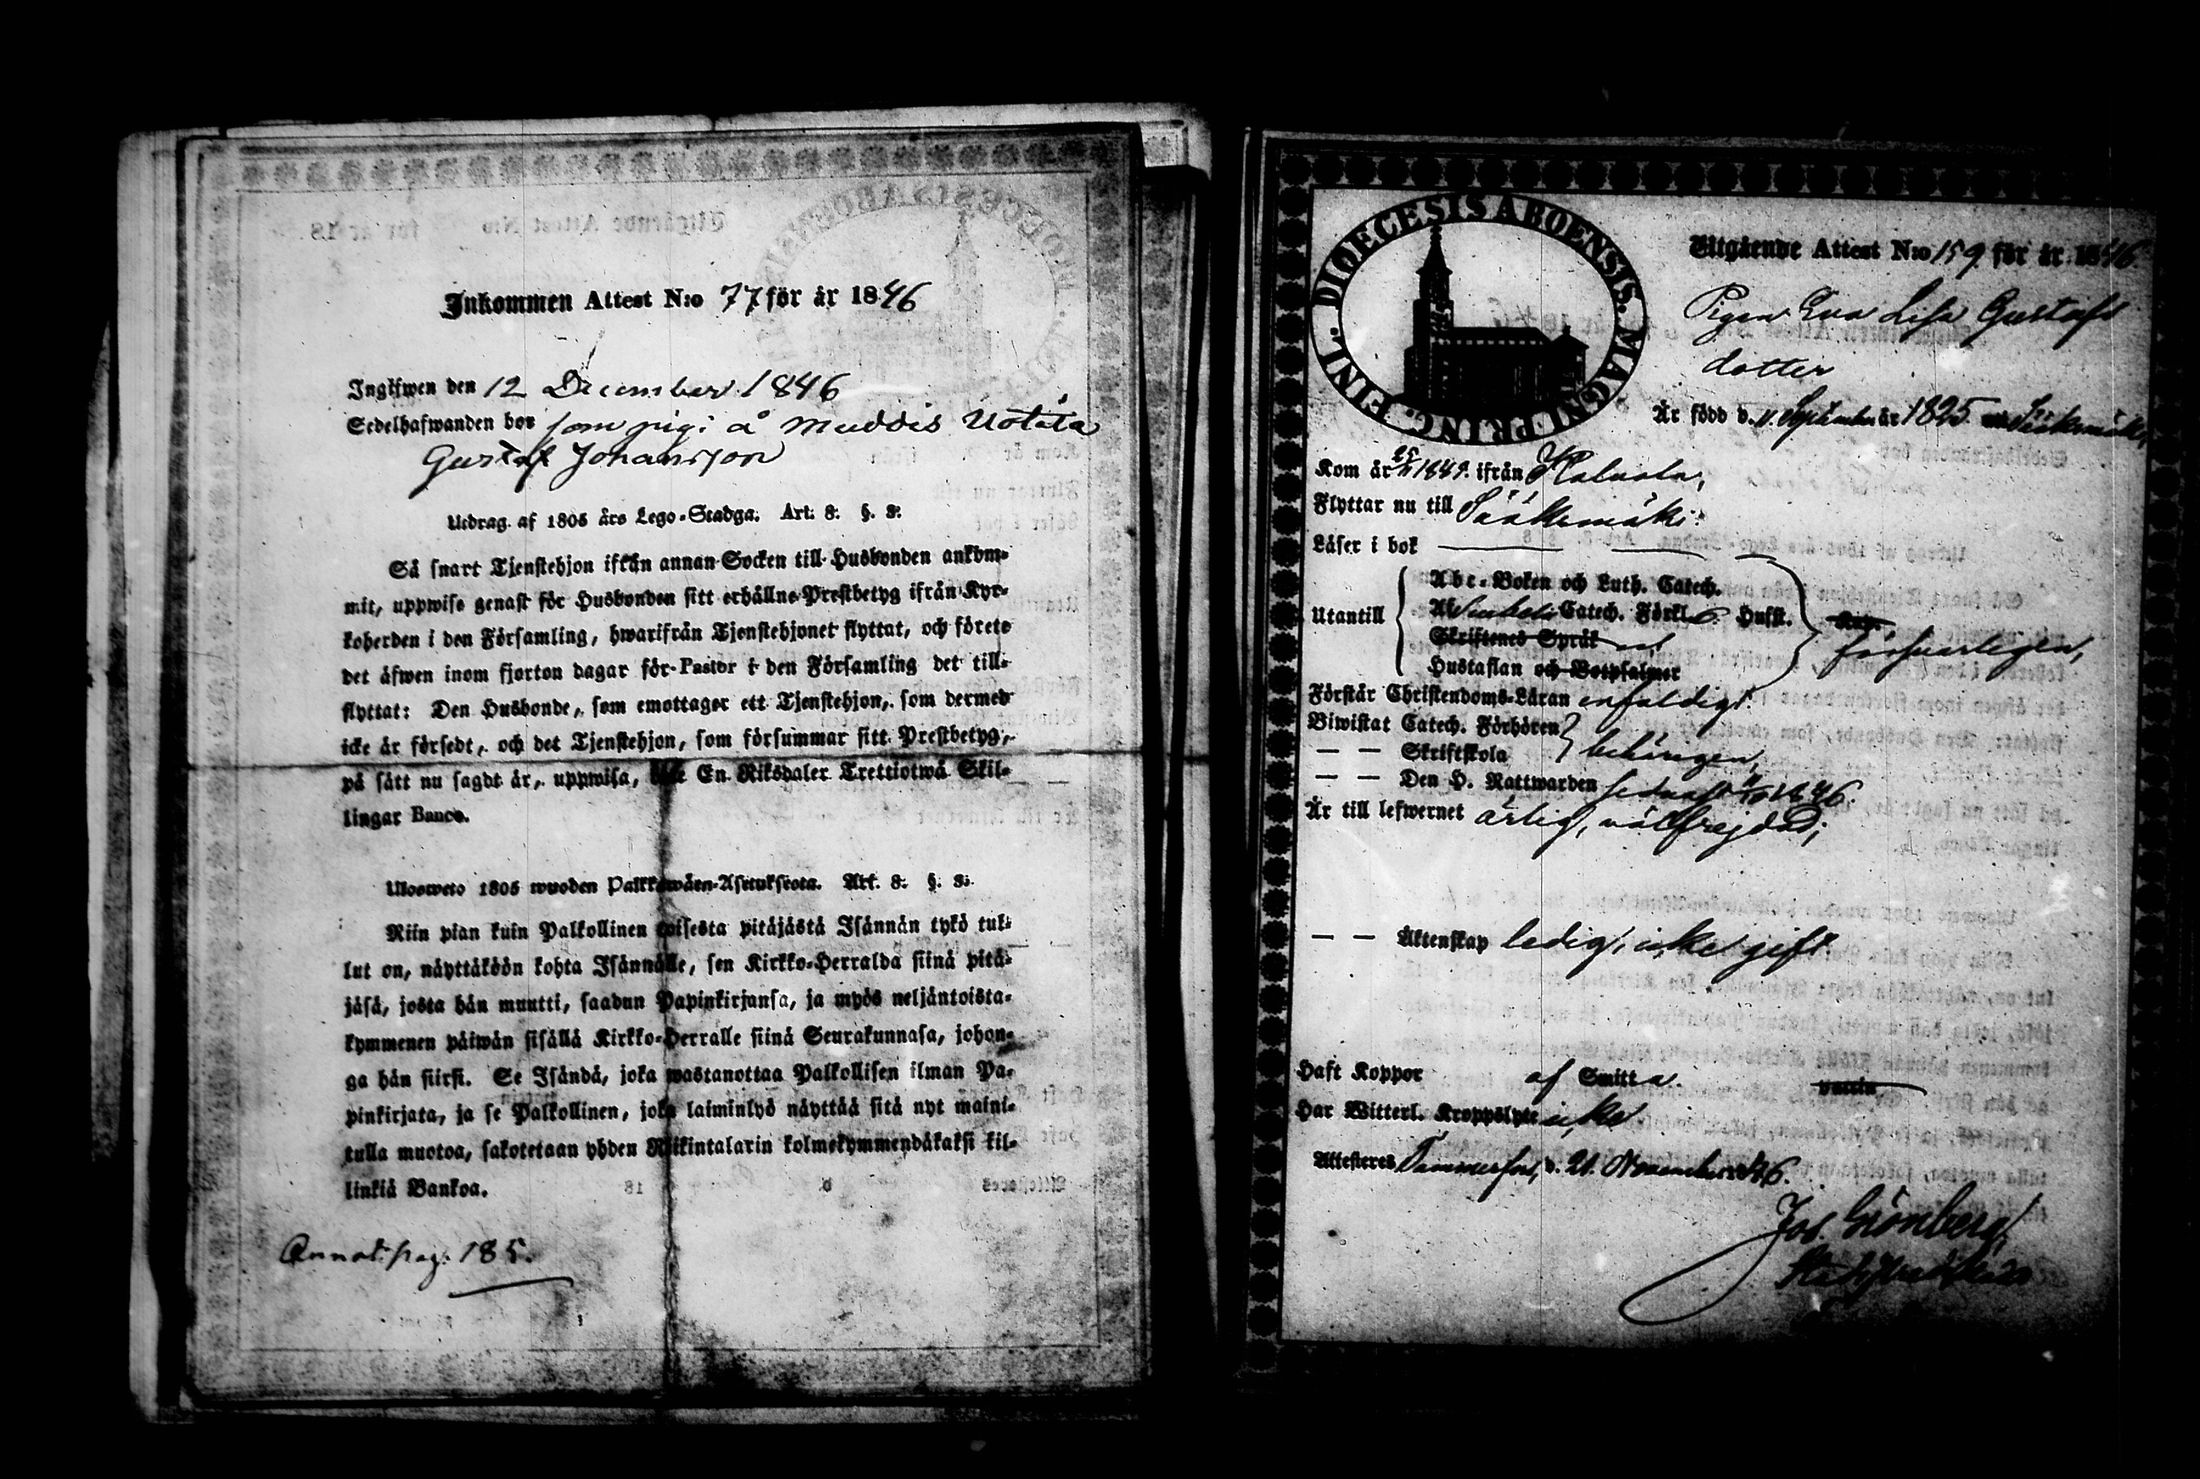 Inkommen Attest N:o 77 för år 1846
Ingifwen den 12 December 1846
Sedelhafwanden bor som pig: å Muddis Uotila
Gustaf Johansson
Utdrag af 1805 års Lego-Stadga. Art: 8. §. 8:
Så snart Tjenstehjon ifrån annan Socken till Husbonden ankom-
mit, uppwise genast för Husbonden sitt erhållne Prestbetyg ifrån Kyr-
koherden i den Församling, hwarifrån Tjenstehjonet flyttat, och förete
det äfwen inom fjorton dagar för Pastor i den Församling det till-
flyttat: Den Husbonde, som emottager ett Tjenstehjon, som dermed
icke är försedt, och det Tjenstehjon, som försummar sitt Prestbetyg,
på sätt nu sagdt är, uppwisa, En Riksdaler Trettiotwå Skil-
lingar Banco.
Ulosweto 1805 wuoden Palkkawäen-Asetuksesta. Art. 8. §. 8.
Niin pian kuin Palkollinen toisesta pitäjästä Isännän tykö tul-
lut on, näyttäköön kohta Isännälle, sen Kirkko-Herralda siinä pitä-
jäsä, josta hän muutti, saadun Papinkirjansa, ja myös neljäntoista-
kymmenen päiwän sisällä Kirkko-Herralle siinä Seurakunnasa, johon-
ga hän siirsi. Se Isändä, joka wastanottaa Palkollisen ilman Pa-
pinkirjata, ja se Palkollinen, joka laiminlyö näyttää sitä nyt maini-
tulla muotoa, sakotetaan yhden Riikintalarin kolmekymmendäkaksi kil-
linkiä Bankoa.
Annot: pag. 185.
DIOECESIS ABOENSIS. MAGNI PRINC. FINL.
Utgående Attest N:o 159 för år 1846.
Pigan Eva Lisa Gustafs
dotter
Är född d. 11 September år 1825 Sääksmäki,
Kom år 1849. ifrån Kalvola,
Flyttar nu till Sääksmäki.
Läser i bok
Utantill
Abc-Boken och Luth. Catech.
Catech. Förkl. Husst.
Skriftenes Språk
Hustaflan och Botpsalmer
försvarligen,
Förstår Christendoms-Läran enfaldigt
Biwistat Catech. Förhören
— — Skriftskola
behörigen,
— — Den H. Nattwarden sednast 1846.
Är till lefwernet ärlig, välfrejdad;
— — Äktenskap ledig, icke gift
Haft Koppor af Smitta. vaccin
Har Witterl. Kroppslyte icke
Attesteres Tammerfors, d. 21. November 1846.
Jos. Grönberg,